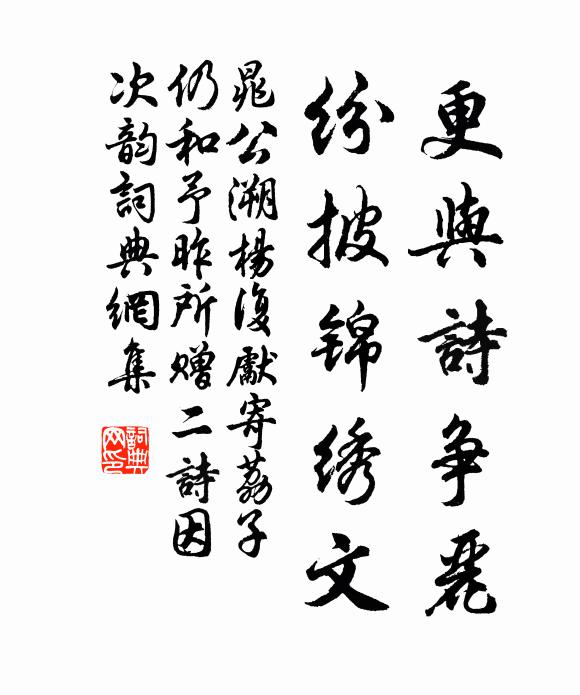 更與詩争麗
紛披锦绣文
晁公溯楊復獻寄荔子
仍和予昨所赠二詩因
次韵詞典網集
詞典
网印